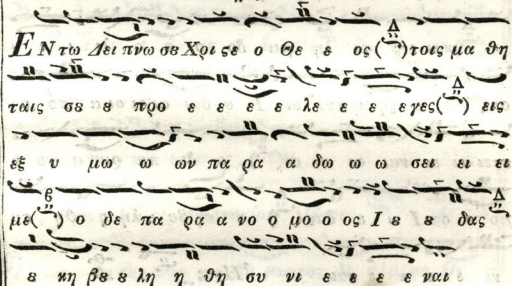 ΕΝ τω Δει πνω σȣ Χρι ϛε ο Θε ε ος( )τοις μα θη
ταις σȣ ȣ προ ε ε ε ε ε λε ε ε ε γες( ) εις
εξ υ μω ω ων πα ρα α δω ω ω σει ει ει
με( ) ο δε πα ρα α νο ο μο ο ος Ι ȣ ȣ δας
ȣ κη βȣ ȣ λη η θη συ νι ε ε ε ε ναι